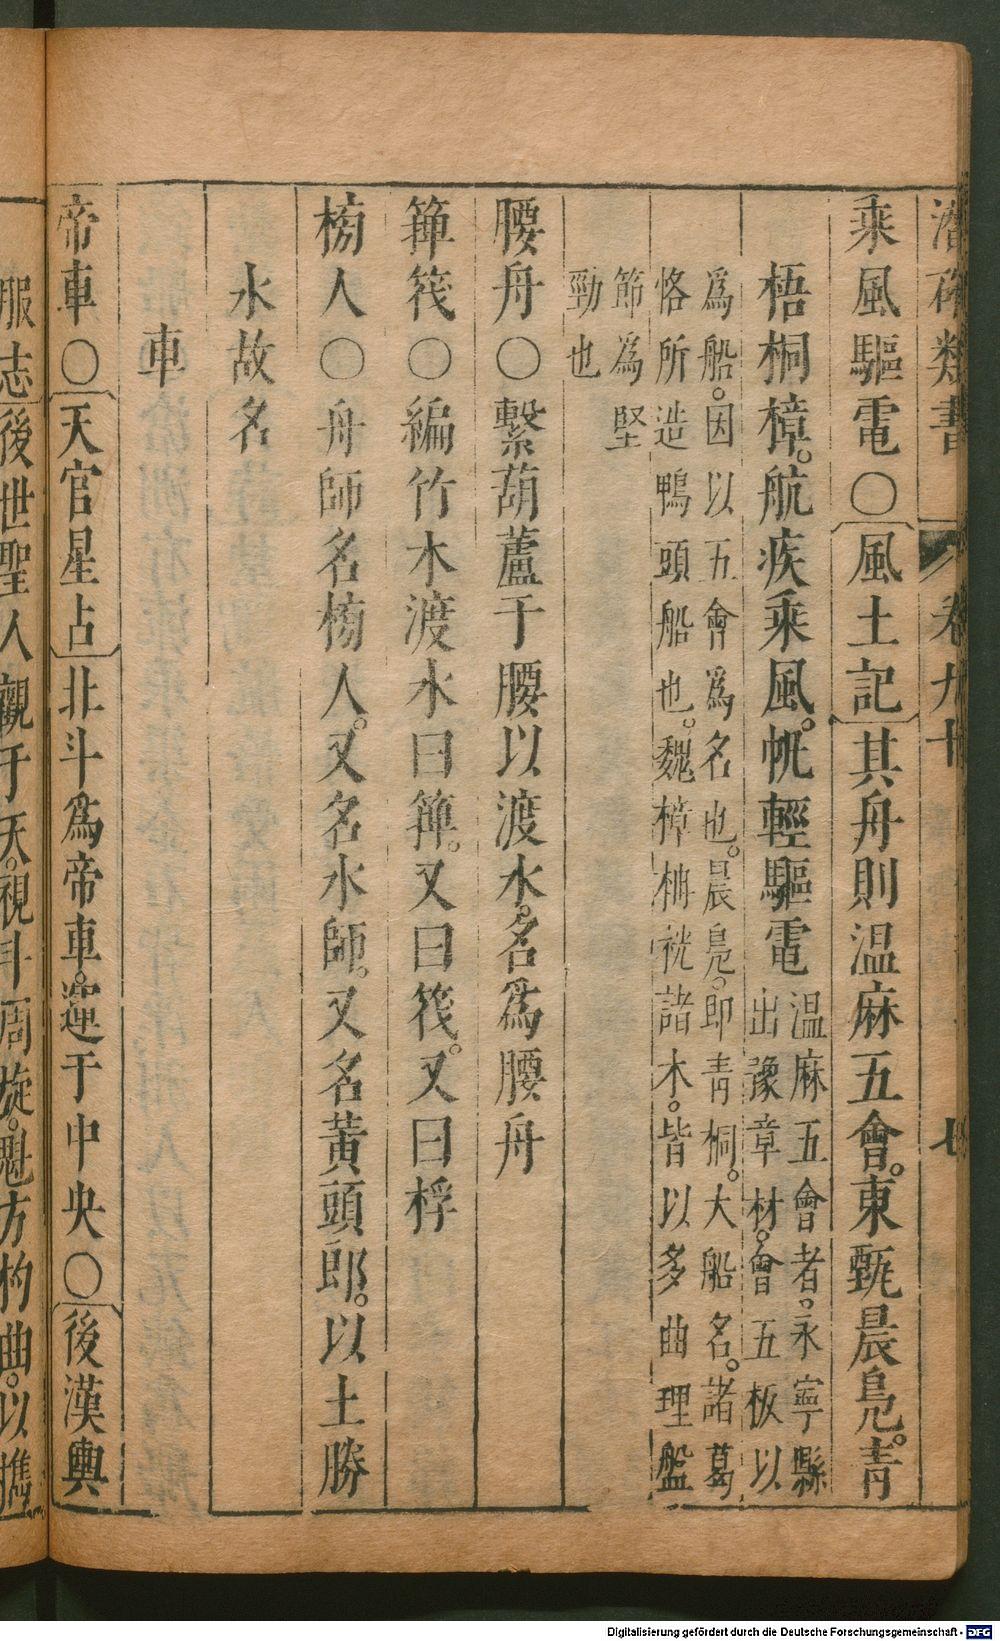 潛確類書 卷九十 七
乘風驅電〇風土記其舟則温麻五會。東甄晨鳧。青
梧桐樟。航疾乘風。帆輕驅電
温麻五會者。永寧縣
出豫章材。會五板以
為船。因以五會爲名也。晨鳧。即青桐。大船名。諸葛
恪所造鴨頭船也。魏樟栴𣑱諸木。皆以多曲理盤
節為堅
勁也
腰舟〇繫葫蘆于腰以渡水。名爲腰舟
箄筏〇編竹木渡水曰箄。又曰筏。又曰桴
榜人〇舟師名榜人。又名水師。又名黃頭郎。以土勝
水故名
車
帝車〇天官星占北斗爲帝車。運于中央〇後漢輿
服志後世聖人觀于天。視斗周旋。魁方杓曲。以攜
Digitalisierung gefördert durch die Deutsche Forschungsgemeinschaft - DFG